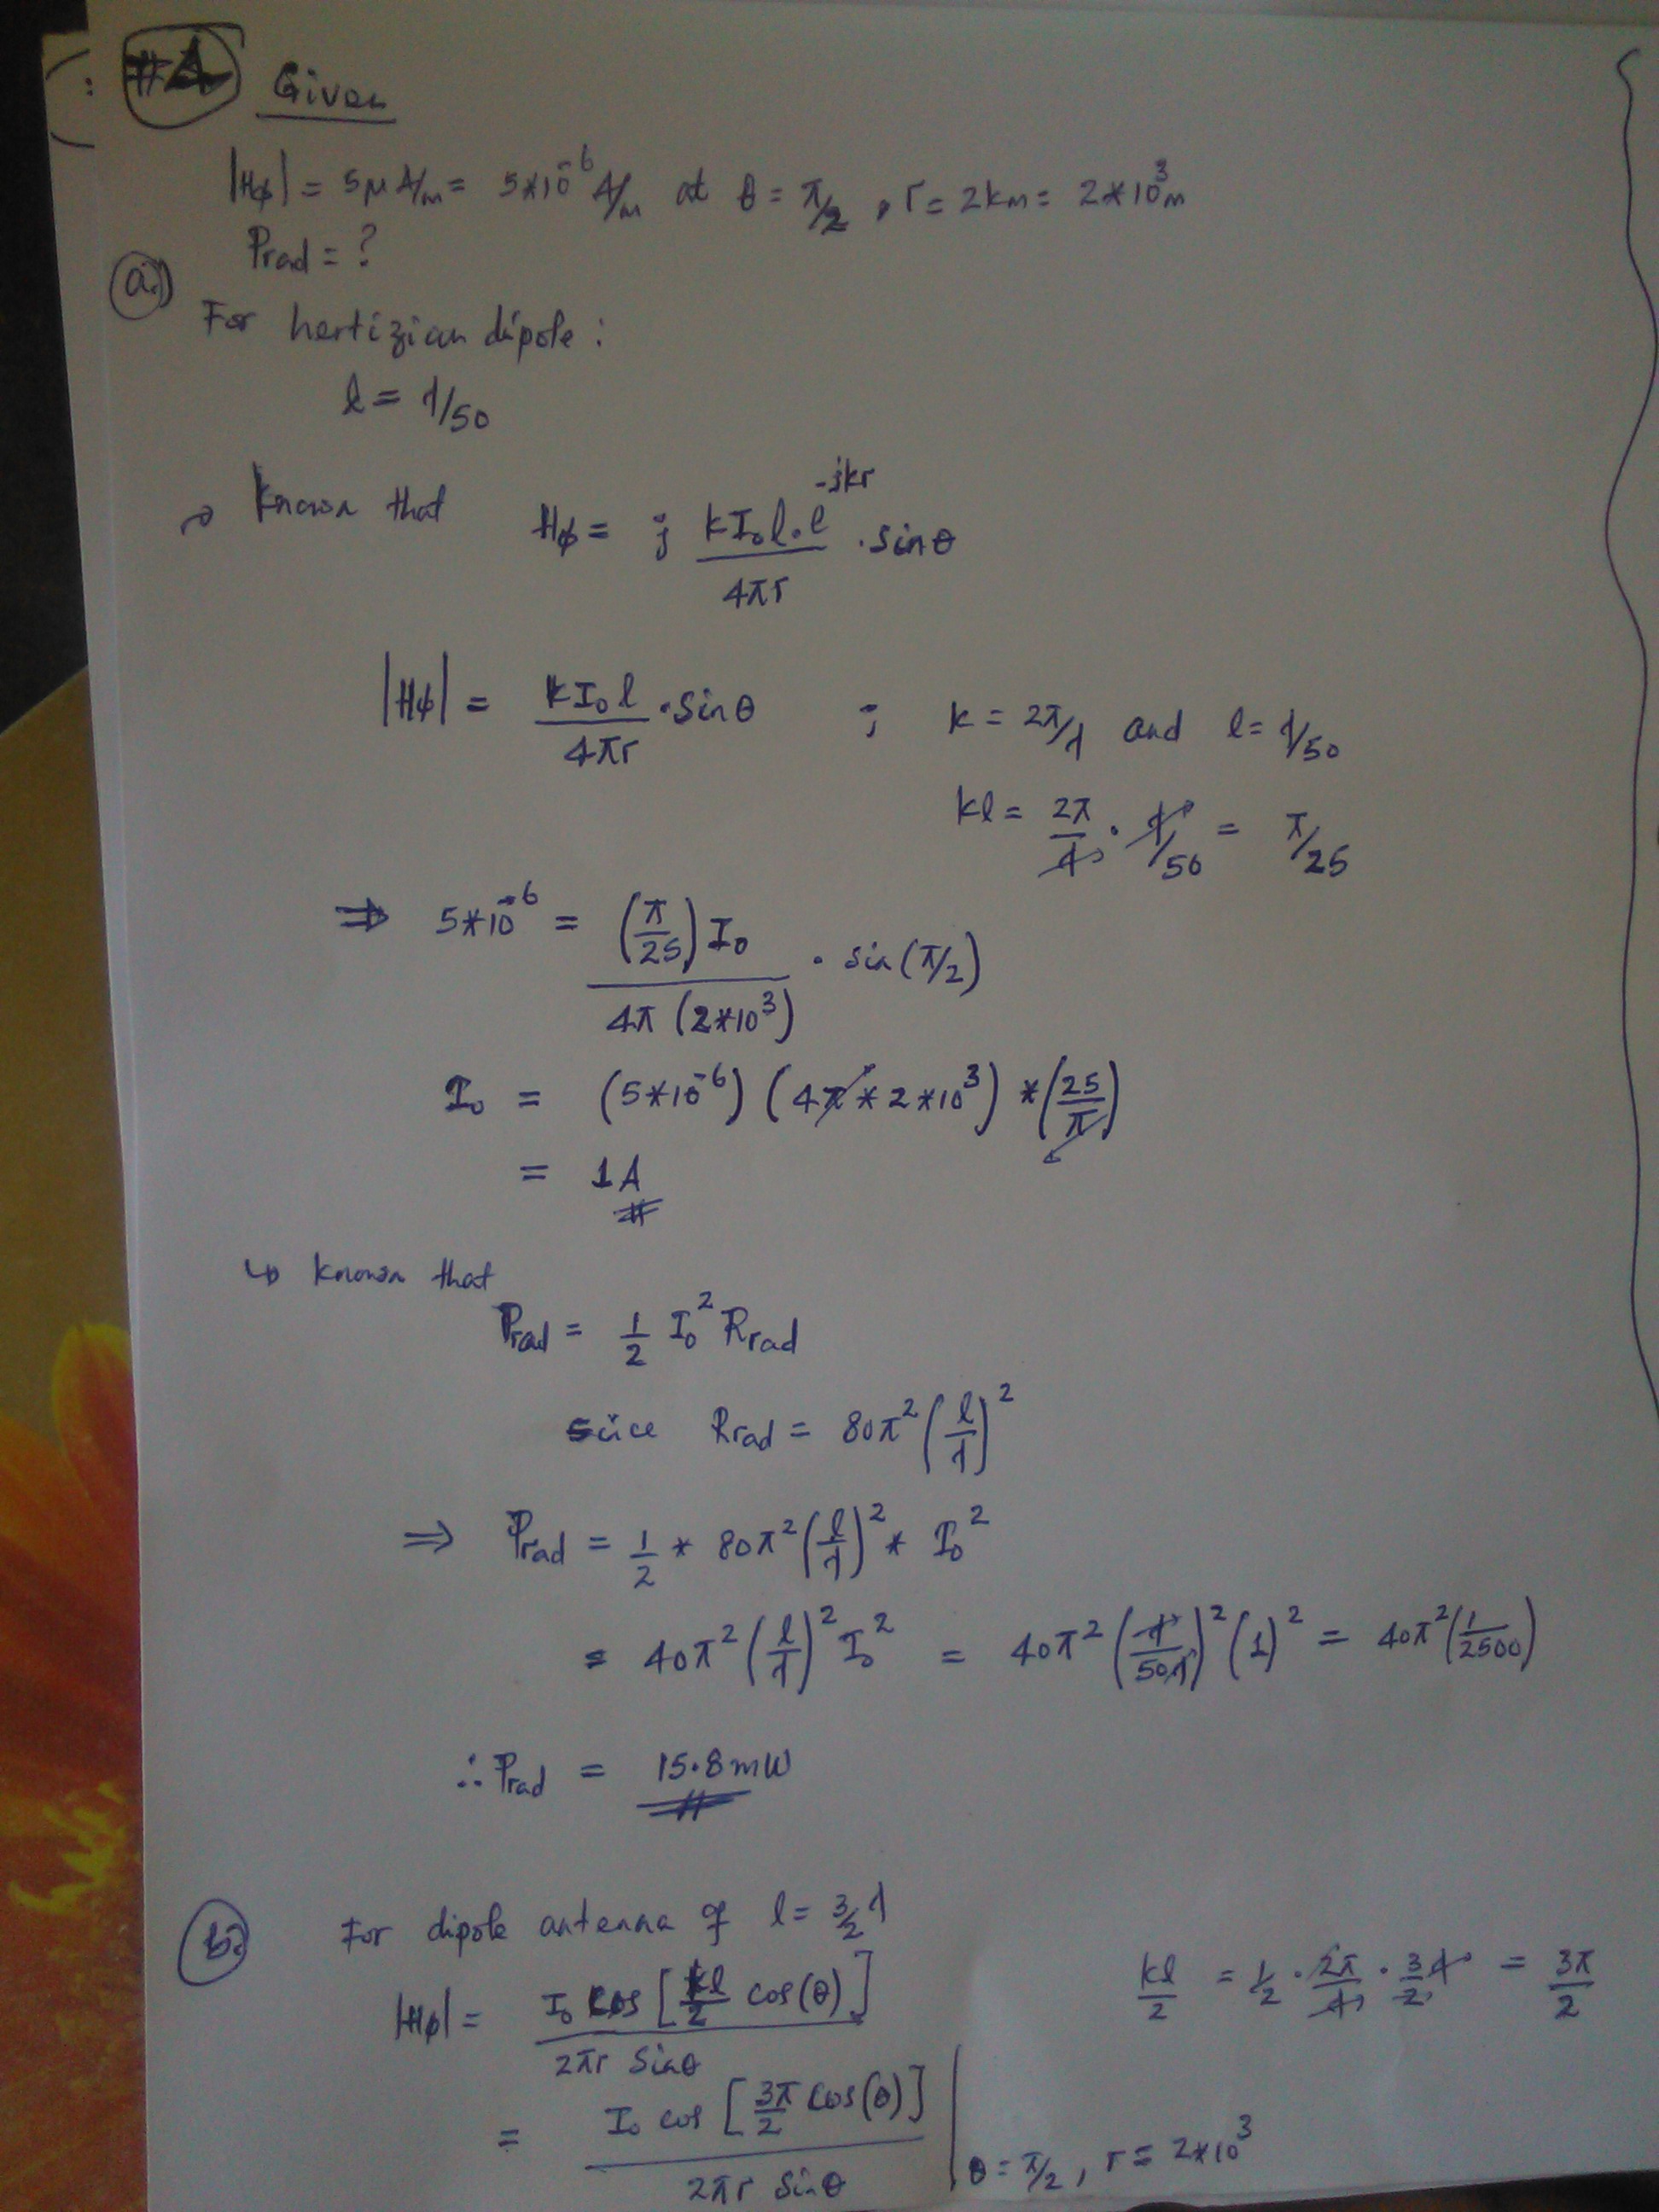 : #4 Given
|Hφ| = 5μ A/m = 5*10^-6 A/m at θ = π/2 , r = 2km = 2*10^3 m
Prad = ?
a.)
For hertizian dipole :
l = λ/50
→ Known that Hφ = j kI₀l.e^-jkr / 4πr . sinθ
|Hφ| = kI₀l / 4πr . sinθ ; k = 2π/λ and l = λ/50
kl = 2π/λ . λ/50 = π/25
⇒ 5*10^-6 = (π/25) I₀ / 4π (2*10^3) . sin(π/2)
I₀ = (5*10^-6) (4π * 2*10^3) * (25/π)
= 1A
↳ known that
Prad = 1/2 I₀^2 Rrad
since Rrad = 80π^2 (l/λ)^2
⇒ Prad = 1/2 * 80π^2 (l/λ)^2 * I₀^2
= 40π^2 (l/λ)^2 I₀^2 = 40π^2 (λ/50λ)^2 (1)^2 = 40π^2 (1/2500)
∴ Prad = 15.8mW
b.) For dipole antenna of l = 3/2 λ
|Hφ| = I₀ cos [kl/2 cos(θ)] / 2πr sinθ
kl/2 = 1/2 . 2π/λ . 3/2 λ = 3π/2
= I₀ cos [3π/2 cos(θ)] / 2πr sinθ | θ = π/2 , r = 2*10^3